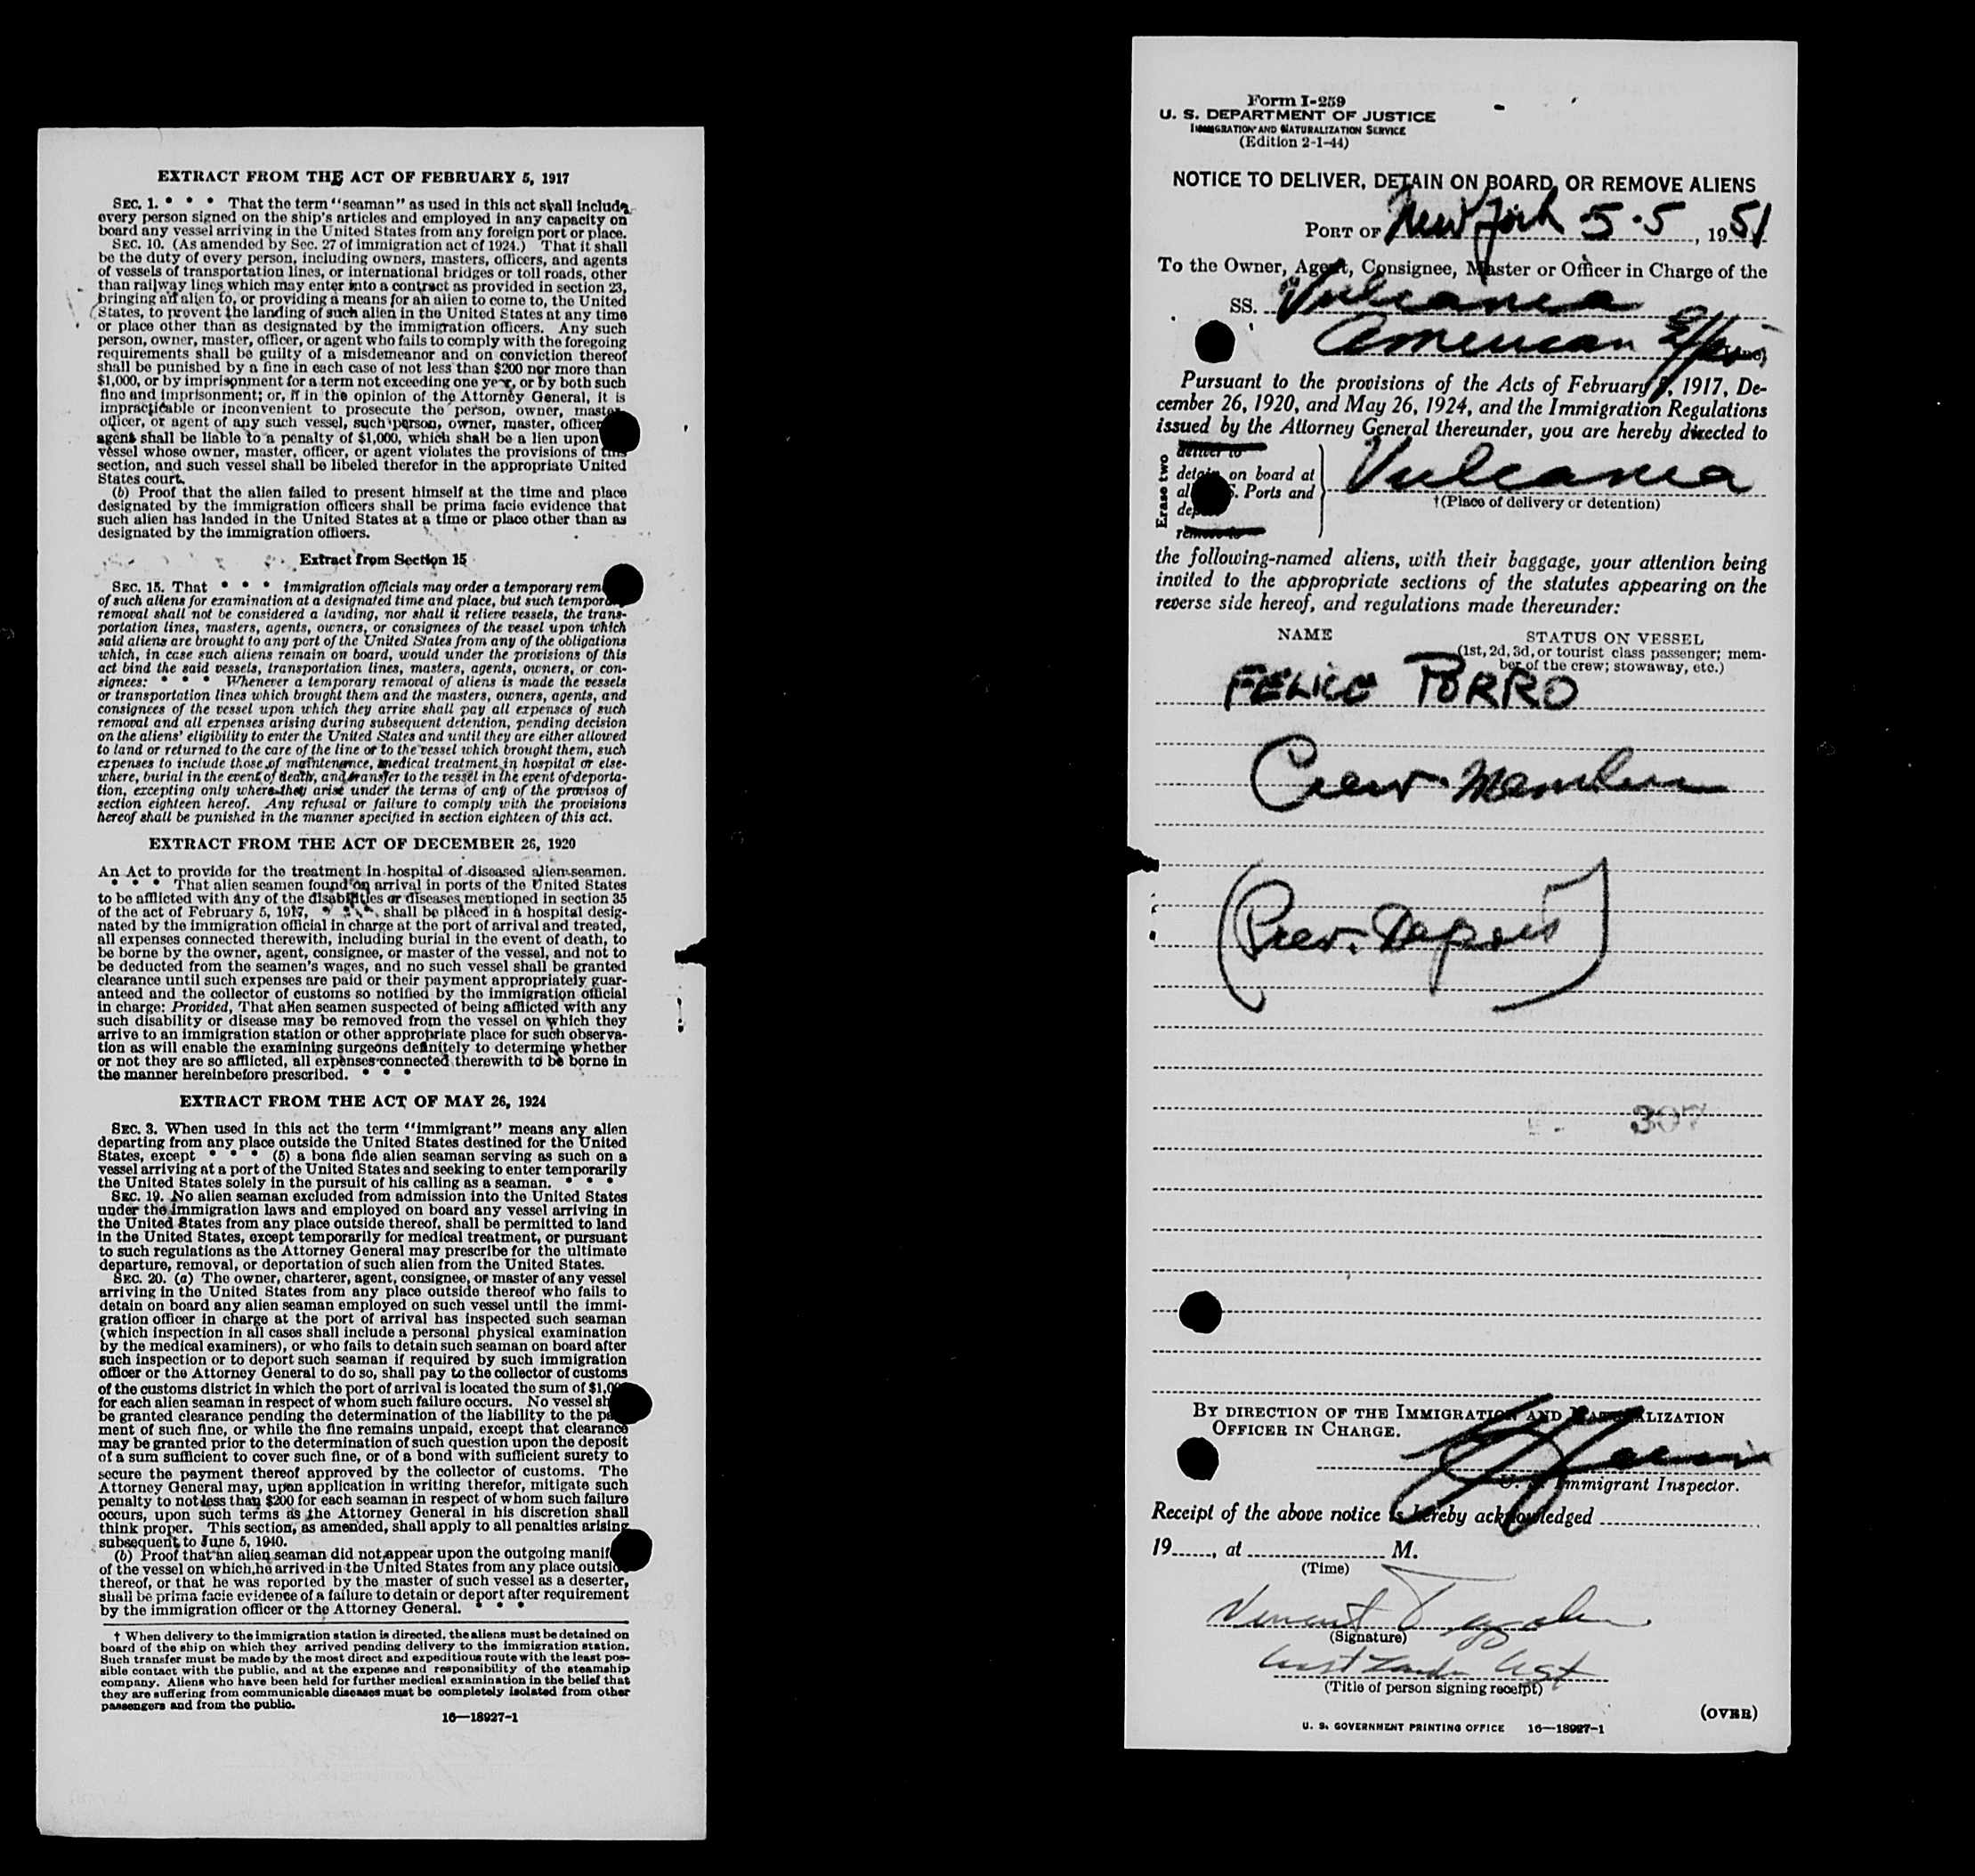 EXTRACT FROM THE ACT OF FEBRUARY 5, 1917
SEC. 1. * * * That the term "seaman" as used in this act shall include
every person signed on the ship's articles and employed in any capacity on
board any vessel arriving in the United States from any foreign port or place.
SEC. 10. (As amended by Sec. 27 of immigration act of 1924.) That it shall
be the duty of every person, including owners, masters, officers, and agents
of vessels of transportation lines, or international bridges or toll roads, other
than railway lines which may enter into a contract as provided in section 23,
bringing an alien to, or providing a means for an alien to come to, the United
States, to prevent the landing of such alien in the United States at any time
or place other than as designated by the immigration officers. Any such
person, owner, master, officer, or agent who fails to comply with the foregoing
requirements shall be guilty of a misdemeanor and on conviction thereof
shall be punished by a fine in each case of not less than $200 nor more than
$1,000, or by imprisonment for a term not exceeding one year, or by both such
fine and imprisonment; or, if in the opinion of the Attorney General, it is
impracticable or inconvenient to prosecute the person, owner, master,
officer, or agent of any such vessel, such person, owner, master, officer
agent shall be liable to a penalty of $1,000, which shall be a lien upon
vessel whose owner, master, officer, or agent violates the provisions of this
section, and such vessel shall be libeled therefor in the appropriate United
States court.
(b) Proof that the alien failed to present himself at the time and place
designated by the immigration officers shall be prima facie evidence that
such alien has landed in the United States at a time or place other than as
designated by the immigration officers.
Extract from Section 15
SEC. 15. That * * * immigration officials may order a temporary rem
of such aliens for examination at a designated time and place, but such temporary
removal shall not be considered a landing, nor shall it relieve vessels, the trans-
portation lines, masters, agents, owners, or consignees of the vessel upon which
said aliens are brought to any port of the United States from any of the obligations
which, in case such aliens remain on board, would under the provisions of this
act bind the said vessels, transportation lines, masters, agents, owners, or con-
signees: * * * Whenever a temporary removal of aliens is made the vessels
or transportation lines which brought them and the masters, owners, agents, and
consignees of the vessel upon which they arrive shall pay all expenses of such
removal and all expenses arising during subsequent detention, pending decision
on the aliens' eligibility to enter the United States and until they are either allowed
to land or returned to the care of the line or to the vessel which brought them, such
expenses to include those of maintenance, medical treatment in hospital or else-
where, burial in the event of death, and transfer to the vessel in the event of deporta-
tion, excepting only where they arise under the terms of any of the provisos of
section eighteen hereof. Any refusal or failure to comply with the provisions
hereof shall be punished in the manner specified in section eighteen of this act.
EXTRACT FROM THE ACT OF DECEMBER 26, 1920
An Act to provide for the treatment in hospital of diseased alien seamen.
* * * That alien seamen found on arrival in ports of the United States
to be afflicted with any of the disabilities or diseases mentioned in section 35
of the act of February 5, 1917, * * *, shall be placed in a hospital desig-
nated by the immigration official in charge at the port of arrival and treated,
all expenses connected therewith, including burial in the event of death, to
be borne by the owner, agent, consignee, or master of the vessel, and not to
be deducted from the seamen's wages, and no such vessel shall be granted
clearance until such expenses are paid or their payment appropriately guar-
anteed and the collector of customs so notified by the immigration official
in charge: Provided, That alien seamen suspected of being afflicted with any
such disability or disease may be removed from the vessel on which they
arrive to an immigration station or other appropriate place for such observa-
tion as will enable the examining surgeons definitely to determine whether
or not they are so afflicted, all expenses connected therewith to be borne in
the manner hereinbefore prescribed. * * *
EXTRACT FROM THE ACT OF MAY 26, 1924
SEC. 3. When used in this act the term "immigrant" means any alien
departing from any place outside the United States destined for the United
States, except * * * (5) a bona fide alien seaman serving as such on a
vessel arriving at a port of the United States and seeking to enter temporarily
the United States solely in the pursuit of his calling as a seaman. * * *
SEC. 19. No alien seaman excluded from admission into the United States
under the immigration laws and employed on board any vessel arriving in
the United States from any place outside thereof, shall be permitted to land
in the United States, except temporarily for medical treatment, or pursuant
to such regulations as the Attorney General may prescribe for the ultimate
departure, removal, or deportation of such alien from the United States.
SEC. 20. (a) The owner, charterer, agent, consignee, or master of any vessel
arriving in the United States from any place outside thereof who fails to
detain on board any alien seaman employed on such vessel until the immi-
gration officer in charge at the port of arrival has inspected such seaman
(which inspection in all cases shall include a personal physical examination
by the medical examiners), or who fails to detain such seaman on board after
such inspection or to deport such seaman if required by such immigration
officer or the Attorney General to do so, shall pay to the collector of customs
of the customs district in which the port of arrival is located the sum of $1,0
for each alien seaman in respect of whom such failure occurs. No vessel sh
be granted clearance pending the determination of the liability to the pa
ment of such fine, or while the fine remains unpaid, except that clearance
may be granted prior to the determination of such question upon the deposit
of a sum sufficient to cover such fine, or of a bond with sufficient surety to
secure the payment thereof approved by the collector of customs. The
Attorney General may, upon application in writing therefor, mitigate such
penalty to not less than $200 for each seaman in respect of whom such failure
occurs, upon such terms as the Attorney General in his discretion shall
think proper. This section, as amended, shall apply to all penalties arising
subsequent to June 5, 1940.
(b) Proof that an alien seaman did not appear upon the outgoing manif
of the vessel on which he arrived in the United States from any place outside
thereof, or that he was reported by the master of such vessel as a deserter,
shall be prima facie evidence of a failure to detain or deport after requirement
by the immigration officer or the Attorney General. * * *
† When delivery to the immigration station is directed, the aliens must be detained on
board of the ship on which they arrived pending delivery to the immigration station.
Such transfer must be made by the most direct and expeditious route with the least pos-
sible contact with the public, and at the expense and responsibility of the steamship
company. Aliens who have been held for further medical examination in the belief that
they are suffering from communicable diseases must be completely isolated from other
passengers and from the public.
16—18927-1
Form I-259
U. S. DEPARTMENT OF JUSTICE
IMMIGRATION AND NATURALIZATION SERVICE
(Edition 2-1-44)
NOTICE TO DELIVER, DETAIN ON BOARD, OR REMOVE ALIENS
PORT OF New York 5-5, 1951
To the Owner, Agent, Consignee, Master or Officer in Charge of the
SS. Vulcania
American
Pursuant to the provisions of the Acts of February 5, 1917, De-
cember 26, 1920, and May 26, 1924, and the Immigration Regulations
issued by the Attorney General thereunder, you are hereby directed to
Erase two
deliver to
detain on board at
all U.S. Ports and
deport
remove to
Vulcania
†(Place of delivery or detention)
the following-named aliens, with their baggage, your attention being
invited to the appropriate sections of the statutes appearing on the
reverse side hereof, and regulations made thereunder:
NAME STATUS ON VESSEL
(1st, 2d, 3d, or tourist class passenger; mem-
ber of the crew; stowaway, etc.)
FELICE PORRO
Crew Member
(Prev. Deport)
307
BY DIRECTION OF THE IMMIGRATION AND NATURALIZATION
OFFICER IN CHARGE.
U. S. Immigrant Inspector.
Receipt of the above notice is hereby acknowledged
19......, at .................. M.
(Time)
Vincent
(Signature)
(Title of person signing receipt)
(OVER)
U. S. GOVERNMENT PRINTING OFFICE 16—18927-1